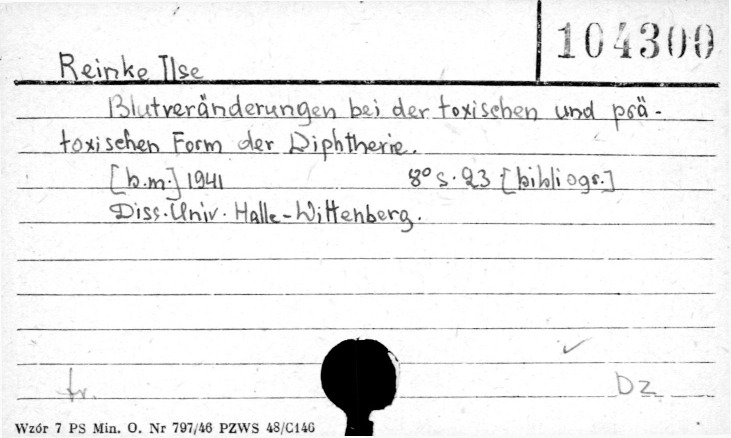 104300
Reinke Ilse
Blutveränderungen bei der toxischen und prä-
toxischen Form der Diphtherie.
[b.m.] 1941 8° s. 23 [bibliogr.]
Diss. Univ. Halle-Wittenberg.
fr. Dz.
Wzór 7 PS Min. O. Nr 797/46 PZWS 48/C146